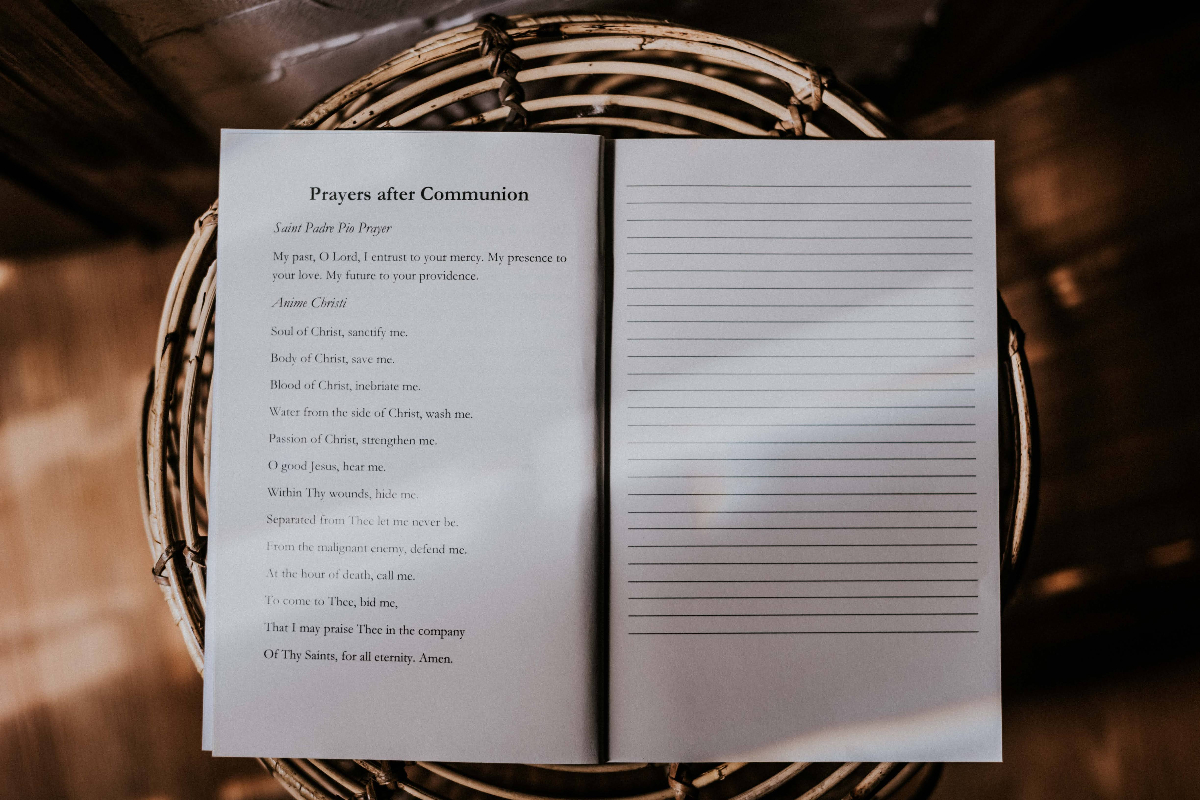 Prayers after Communion
Saint Padre Pio Prayer
My past, O Lord, I entrust to your mercy. My presence to
your love. My future to your providence.
Anime Christi
Soul of Christ, sanctify me.
Body of Christ, save me.
Blood of Christ, inebriate me.
Water from the side of Christ, wash me.
Passion of Christ, strengthen me.
O good Jesus, hear me.
Within Thy wounds, hide me.
Separated from Thee let me never be.
From the malignant enemy, defend me.
At the hour of death, call me.
To come to Thee, bid me,
That I may praise Thee in the company
Of Thy Saints, for all eternity. Amen.